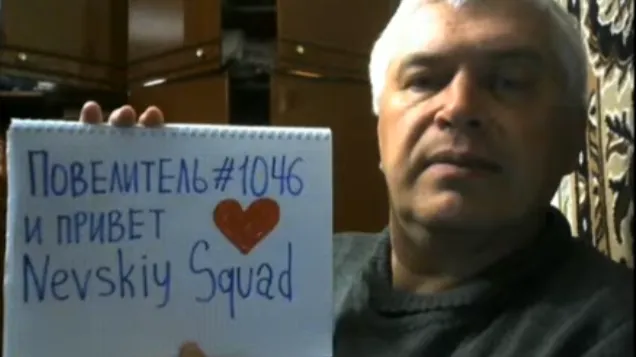 Повелитель #1046
и привет
Nevskiy Squad